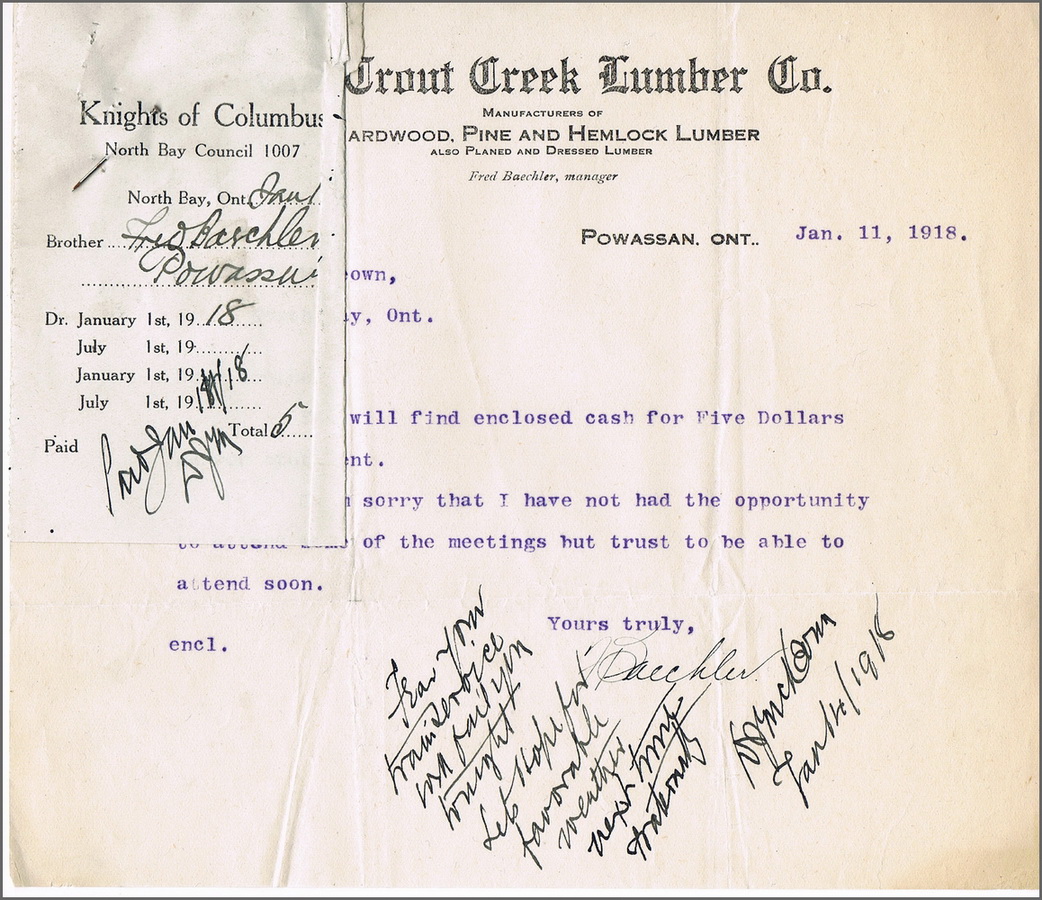 Knights of Columbus
North Bay Council 1007
North Bay, Ont. Jan 1
Brother Fred Baechler
Powassan
Dr. January 1st, 19 18
July 1st, 19
January 1st, 19
July 1st, 19
Total 5
Paid
Paid Jan
Trout Creek Lumber Co.
Manufacturers of
ardwood, Pine and Hemlock Lumber
also Planed and Dressed Lumber
Fred Baechler, manager
Powassan, Ont.. Jan. 11, 1918.
own,
y, Ont.
will find enclosed cash for Five Dollars
nt.
sorry that I have not had the opportunity
to attend some of the meetings but trust to be able to
attend soon.
Yours truly,
encl.
Baechler
Fear your
train service
will fail you
tonight
Lets hope for
favorable
weather
next time
fraternally
Jan 14/1918